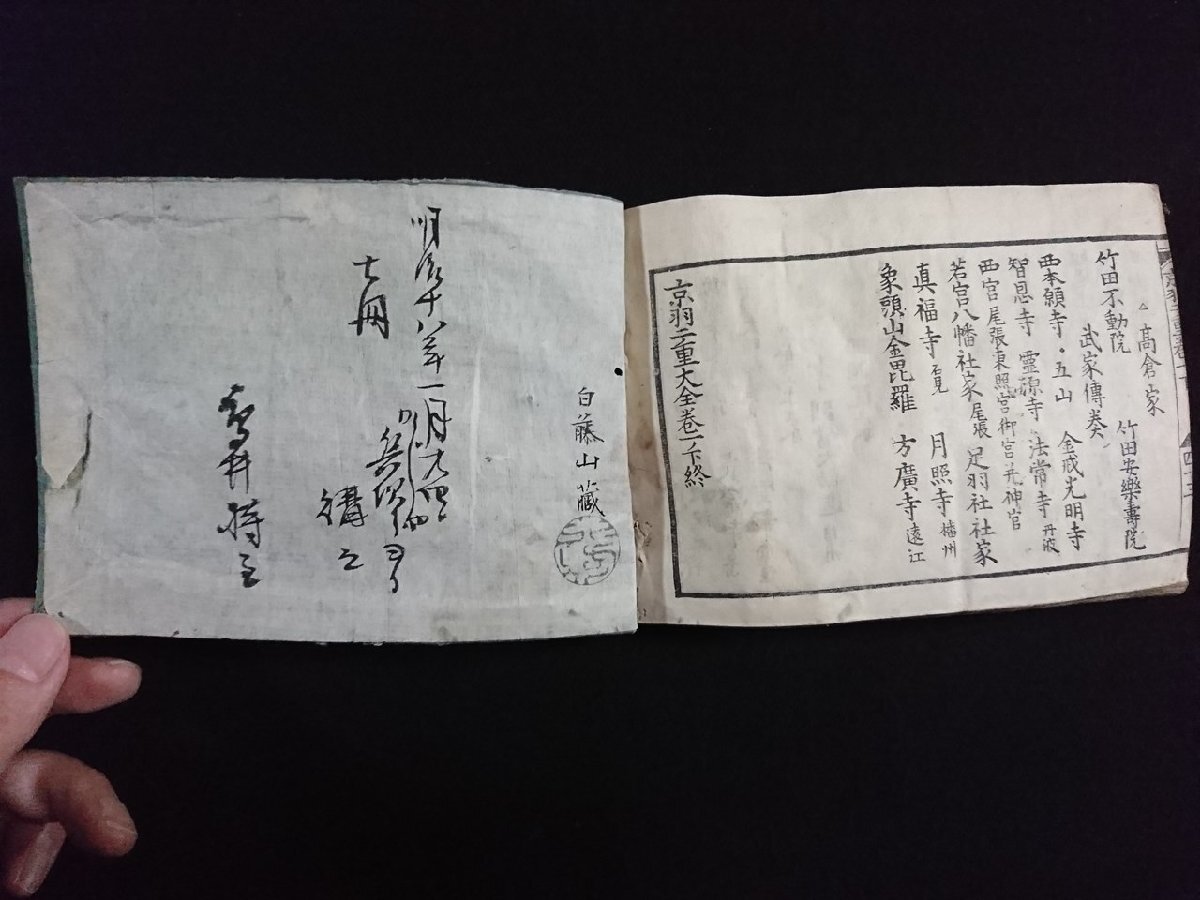 △高倉家
竹田不動院 竹田安樂壽院
武家傳奏
西本願寺・五山 金戒光明寺
智恩寺 靈源寺 法常寺 丹波
西宮 尾張東照宮御宮并神宮
若宮八幡社家 尾張 足羽社社家
真福寺 石見 月照寺 播州
象頭山金毘羅 方廣寺 遠江
京羽二重大全卷一下終
白藤山藏
明治十八年一月
ヨリ
購之
七冊
井持主